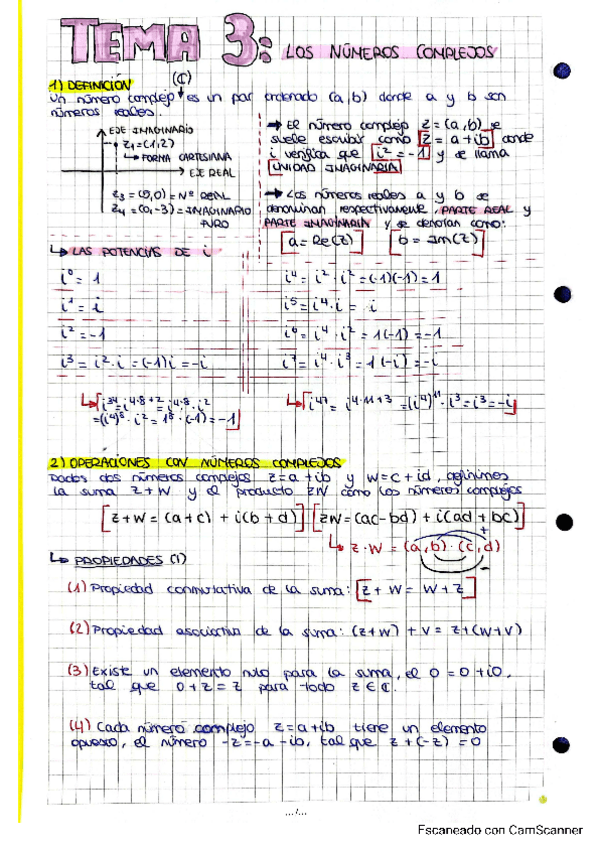 TEMA 3: LOS NÚMEROS COMPLEJOS
1) DEFINICIÓN
(ℂ)
Un número complejo es un par ordenado (a,b) donde a y b son
números reales.
EJE IMAGINARIO
z₁=(1,2)
↳ FORMA CARTESIANA
EJE REAL
z₃=(5,0)= Nº REAL
z₄=(0,-3)= IMAGINARIO
PURO
→ El número complejo z=(a,b) se
suele escribir como [z = a+ib] donde
i verifica que [i² = -1] y se llama
[UNIDAD IMAGINARIA]
→ Los números reales a y b se
denominan respectivamente, PARTE REAL y
PARTE IMAGINARIA y se denotan como:
[a = Re(z)] [b = Im(z)]
↳ LAS POTENCIAS DE i
i⁰ = 1
i¹ = i
i² = -1
i³ = i²·i = (-1)i = -i
i⁴ = i²·i² = (-1)(-1) = 1
i⁵ = i⁴·i = i
i⁶ = i⁴·i² = 1(-1) = -1
i⁷ = i⁴·i³ = 1(-i) = -i
↳ [i³⁴ = i⁴·⁸⁺² = i⁴·⁸·i²
= (i⁴)⁸·i² = 1⁸·(-1) = -1]
↳ [i⁴⁷ = i⁴·¹¹⁺³ = (i⁴)¹¹·i³ = i³ = -i]
2) OPERACIONES CON NÚMEROS COMPLEJOS
Dados dos números complejos z=a+ib y w=c+id, definimos
la suma z+w y el producto zw como los números complejos
[z+w = (a+c) + i(b+d)] [zw = (ac-bd) + i(ad+bc)]
↳ z·w = (a,b)·(c,d)
+
-
↳ PROPIEDADES (1)
(1) Propiedad conmutativa de la suma: [z+w = w+z]
(2) Propiedad asociativa de la suma: (z+w) + v = z+(w+v)
(3) Existe un elemento nulo para la suma, el 0 = 0+i0,
tal que 0+z = z para todo z ∈ ℂ.
(4) Cada número complejo z=a+ib tiene un elemento
opuesto, el número -z=-a-ib, tal que z+(-z) = 0
.../...
Escaneado con CamScanner